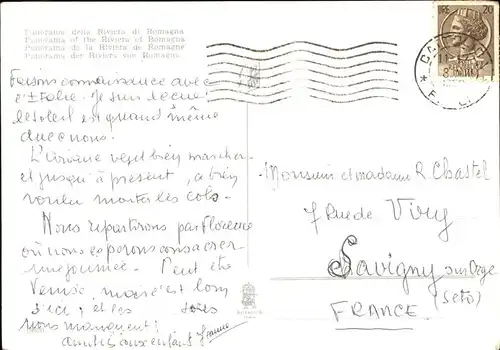 Panorama della Riviera di Romagna
Panorama of the Riviera of Romagna
Panorama de la Riviera de Romagne
Panorama der Riviera von Romagna
Faisons connaissance avec
l'Italie. Je suis
le soleil est quand même
avec nous.
L'Ariane veut bien marcher
et jusqu'à présent, a bien
voulu monter les cols.
Nous repartirons par Florence
où nous espérons consacrer
une journée. Peut être
Venise, mais c'est loin
d'ici, et les
nous manquent!
amitiés aux enfants Jeanne
Monsieur et madame R. Chastel
7 Rue de Viry
Savigny sur Orge
(Seto)
FRANCE
20